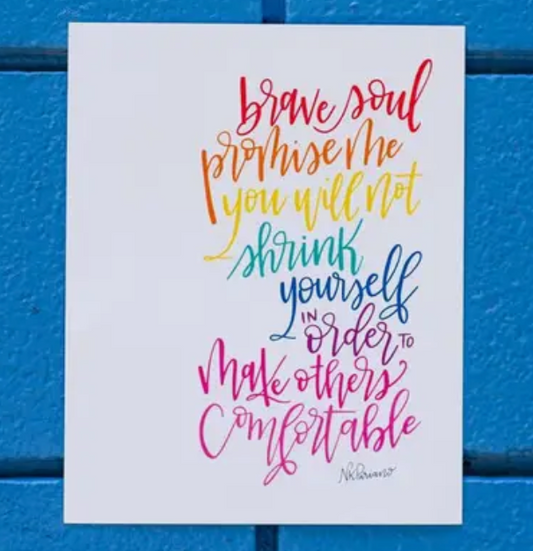 brave soul
promise me
you will not
shrink
yourself
IN order TO
make others
Comfortable